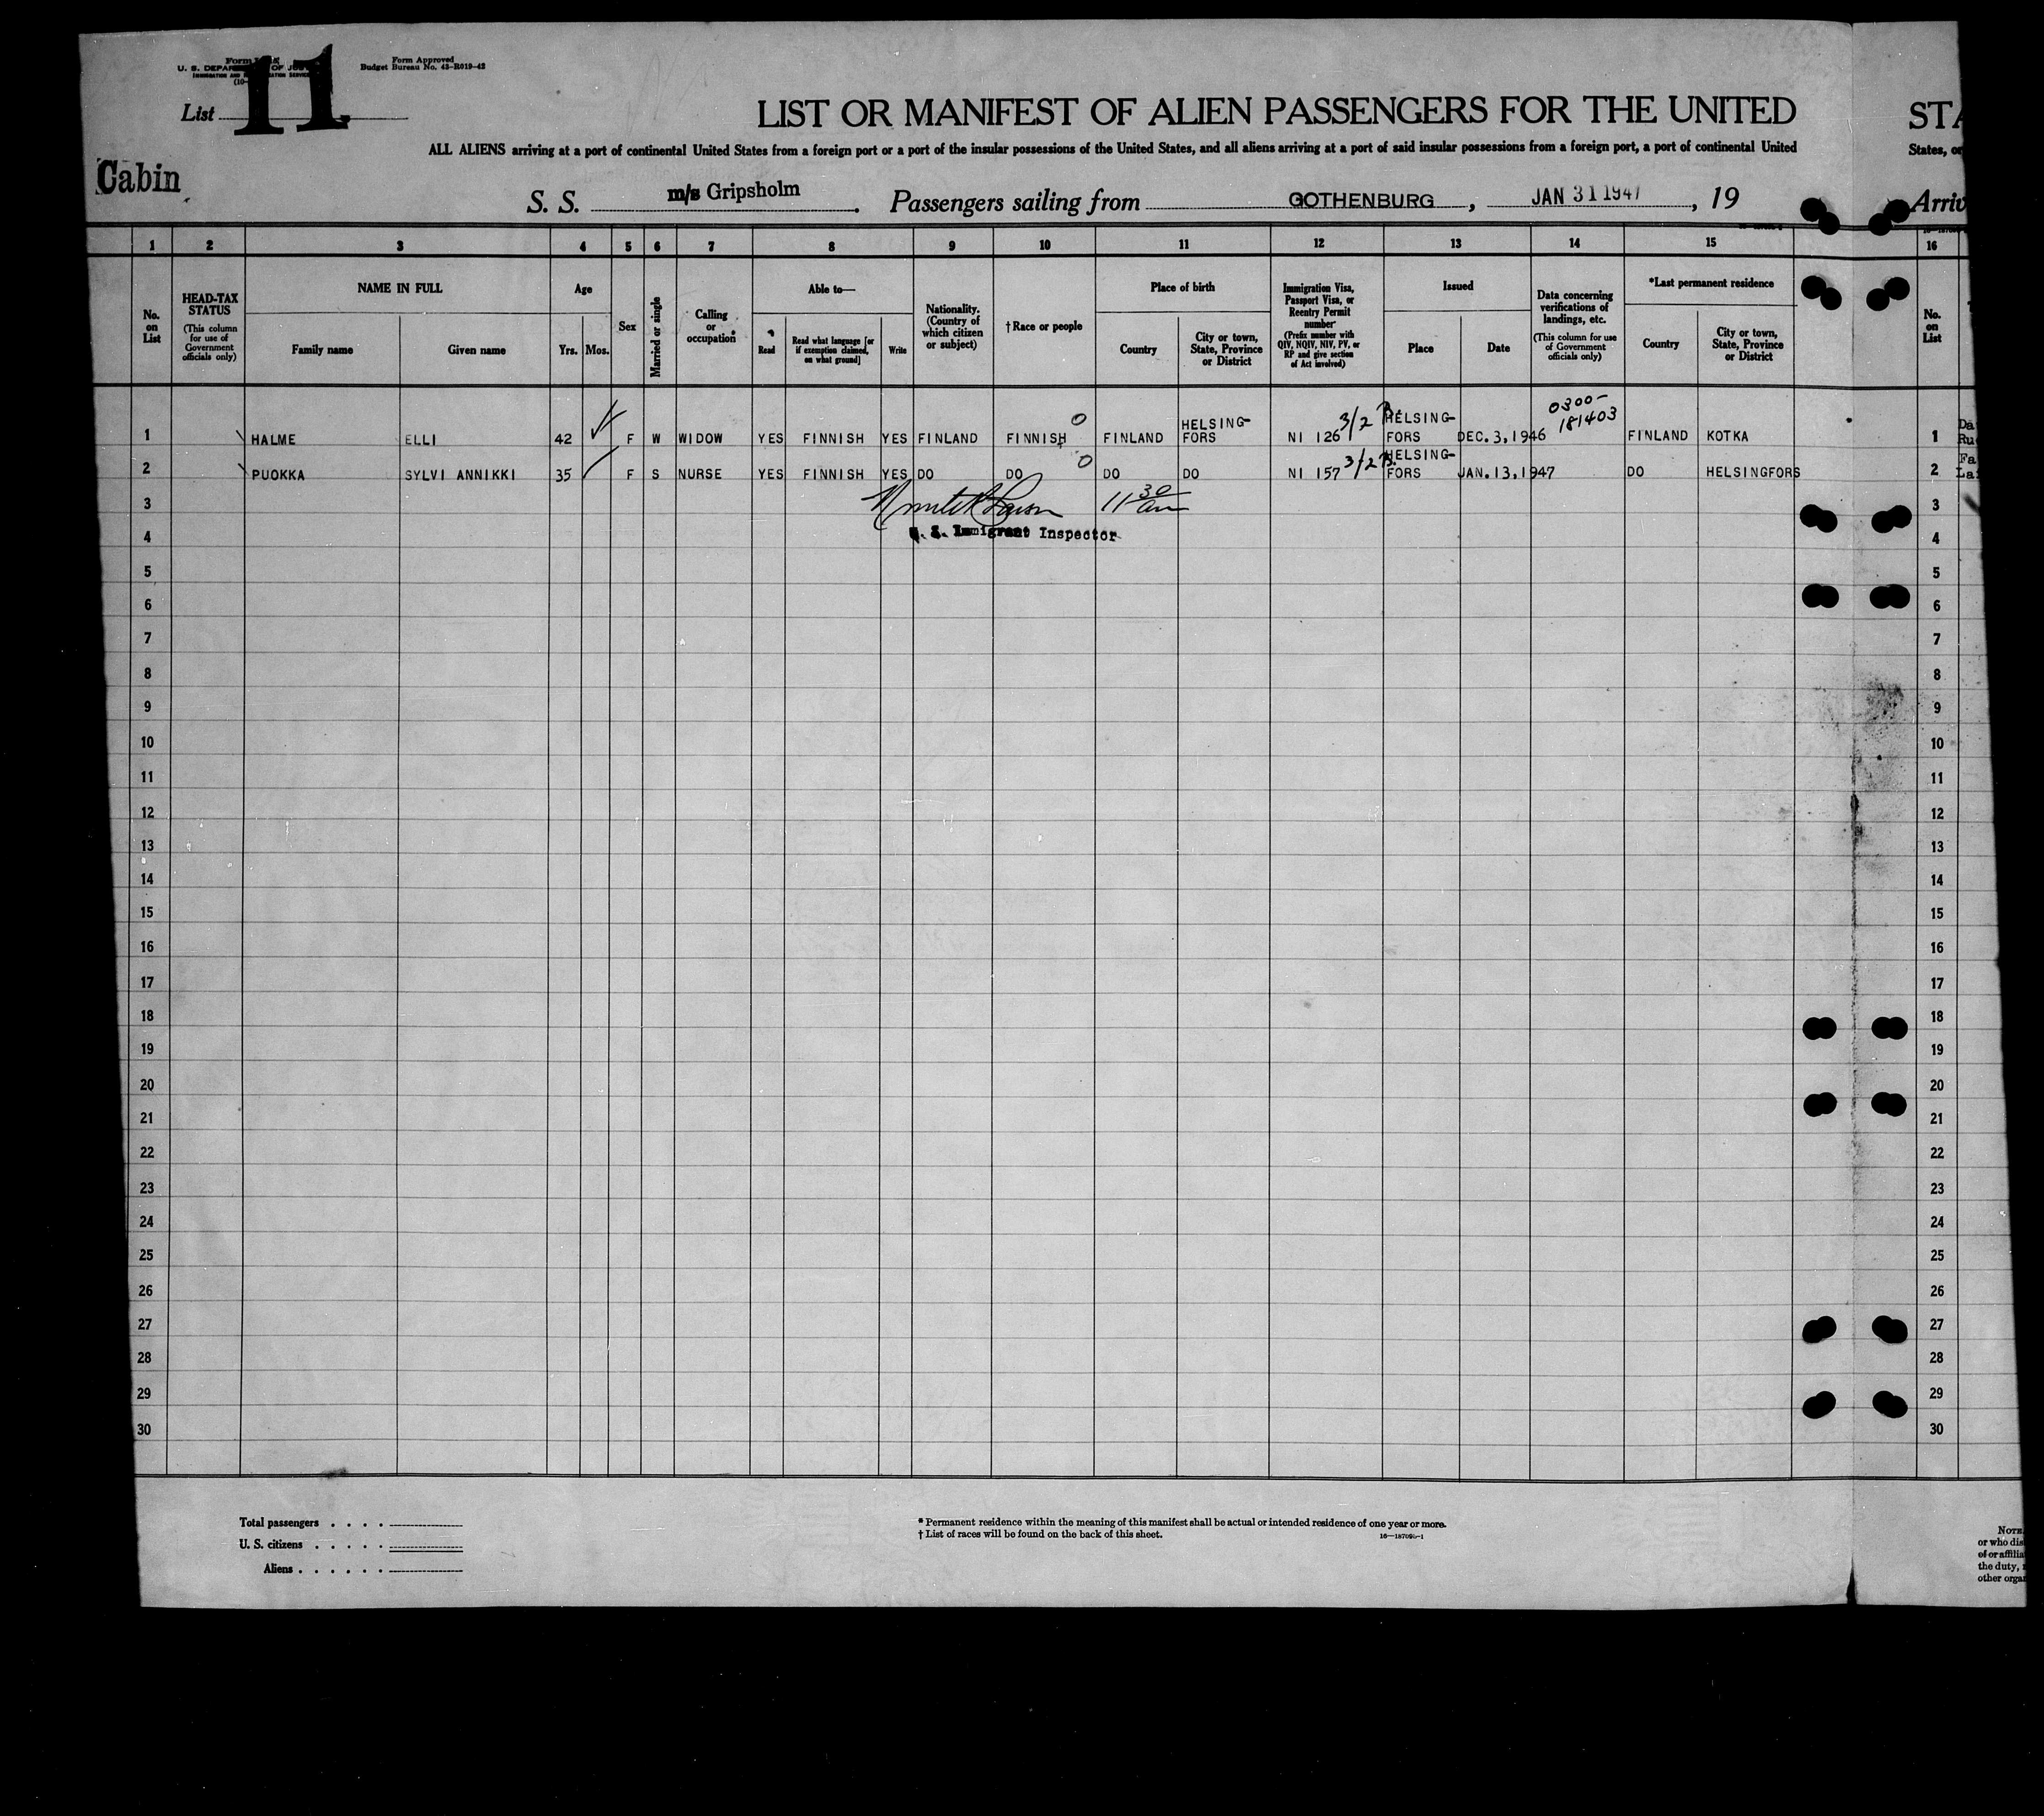 Form Approved
Budget Bureau No. 43-R019-42
U. S. DEPARTMENT OF JUSTICE
List 11
LIST OR MANIFEST OF ALIEN PASSENGERS FOR THE UNITED STA
ALL ALIENS arriving at a port of continental United States from a foreign port or a port of the insular possessions of the United States, and all aliens arriving at a port of said insular possessions from a foreign port, a port of continental United States, or
Cabin
S. S. m/s Gripsholm. Passengers sailing from GOTHENBURG, JAN 31 1947, 19 Arriv
1 2 3 4 5 6 7 8 9 10 11 12 13 14 15 16
No. on List
HEAD-TAX STATUS
(This column for use of Government officials only)
NAME IN FULL
Family name
Given name
Age
Yrs. Mos.
Sex
Married or single
Calling or occupation
Able to—
Read
Read what language [or if exemption claimed, on what ground]
Write
Nationality. (Country of which citizen or subject)
† Race or people
Place of birth
Country
City or town, State, Province or District
Immigration Visa, Passport Visa, or Reentry Permit number
(Prefix number with QIV, NQIV, NIV, PV, or RP and give section of Act involved)
Issued
Place
Date
Data concerning verifications of landings, etc.
(This column for use of Government officials only)
*Last permanent residence
Country
City or town, State, Province or District
No. on List
1 HALME ELLI 42 F W WIDOW YES FINNISH YES FINLAND FINNISH 0 FINLAND HELSING-FORS NI 126 3/2 HELSING-FORS DEC. 3, 1946 0300-181403 FINLAND KOTKA 1
2 PUOKKA SYLVI ANNIKKI 35 F S NURSE YES FINNISH YES DO DO 0 DO DO NI 157 3/2 HELSING-FORS JAN. 13, 1947 DO HELSINGFORS 2
3 11 30 am 3
U. S. Immigrant Inspector
4 4
5 5
6 6
7 7
8 8
9 9
10 10
11 11
12 12
13 13
14 14
15 15
16 16
17 17
18 18
19 19
20 20
21 21
22 22
23 23
24 24
25 25
26 26
27 27
28 28
29 29
30 30
Total passengers . . . .
U. S. citizens . . . . .
Aliens . . . . . .
* Permanent residence within the meaning of this manifest shall be actual or intended residence of one year or more.
† List of races will be found on the back of this sheet.
NOTE.
or who dis
of or affilia
the duty,
other orga